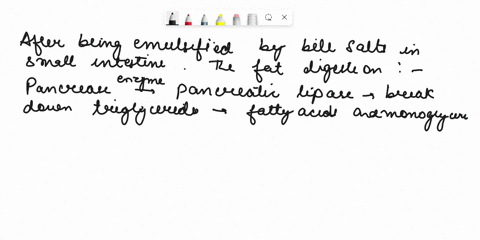 After being emulsified by bile salts in
small intestine. The fat digestion :-
enzyme
Pancreas → pancreatic lipase → break
down triglycerides → fatty acids and monoglycer